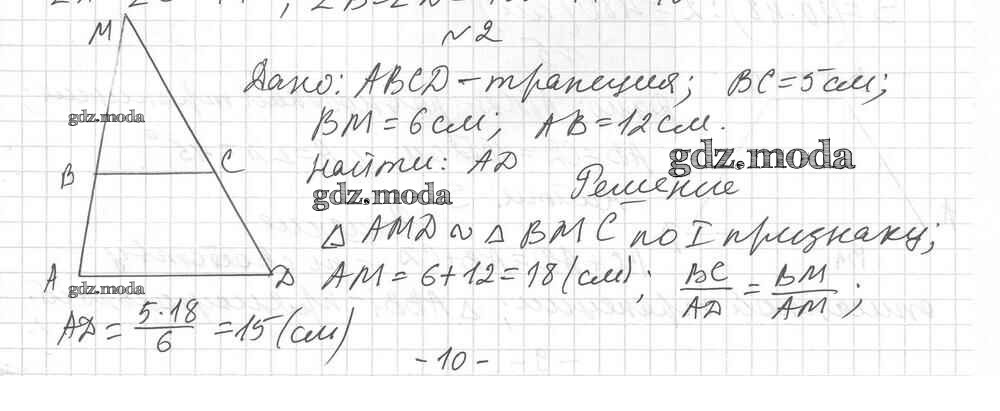 №2
M
Дано: ABCD – трапеция; BC = 5 см;
gdz.moda
BM = 6 см; AB = 12 см.
B
C
найти: AD
gdz.moda
Решение
gdz.moda
△ AMD ~ △ BMC по I признаку;
A
D
AM = 6 + 12 = 18 (см); BC/AD = BM/AM;
gdz.moda
AD = 5·18/6 = 15 (см)
- 10 -